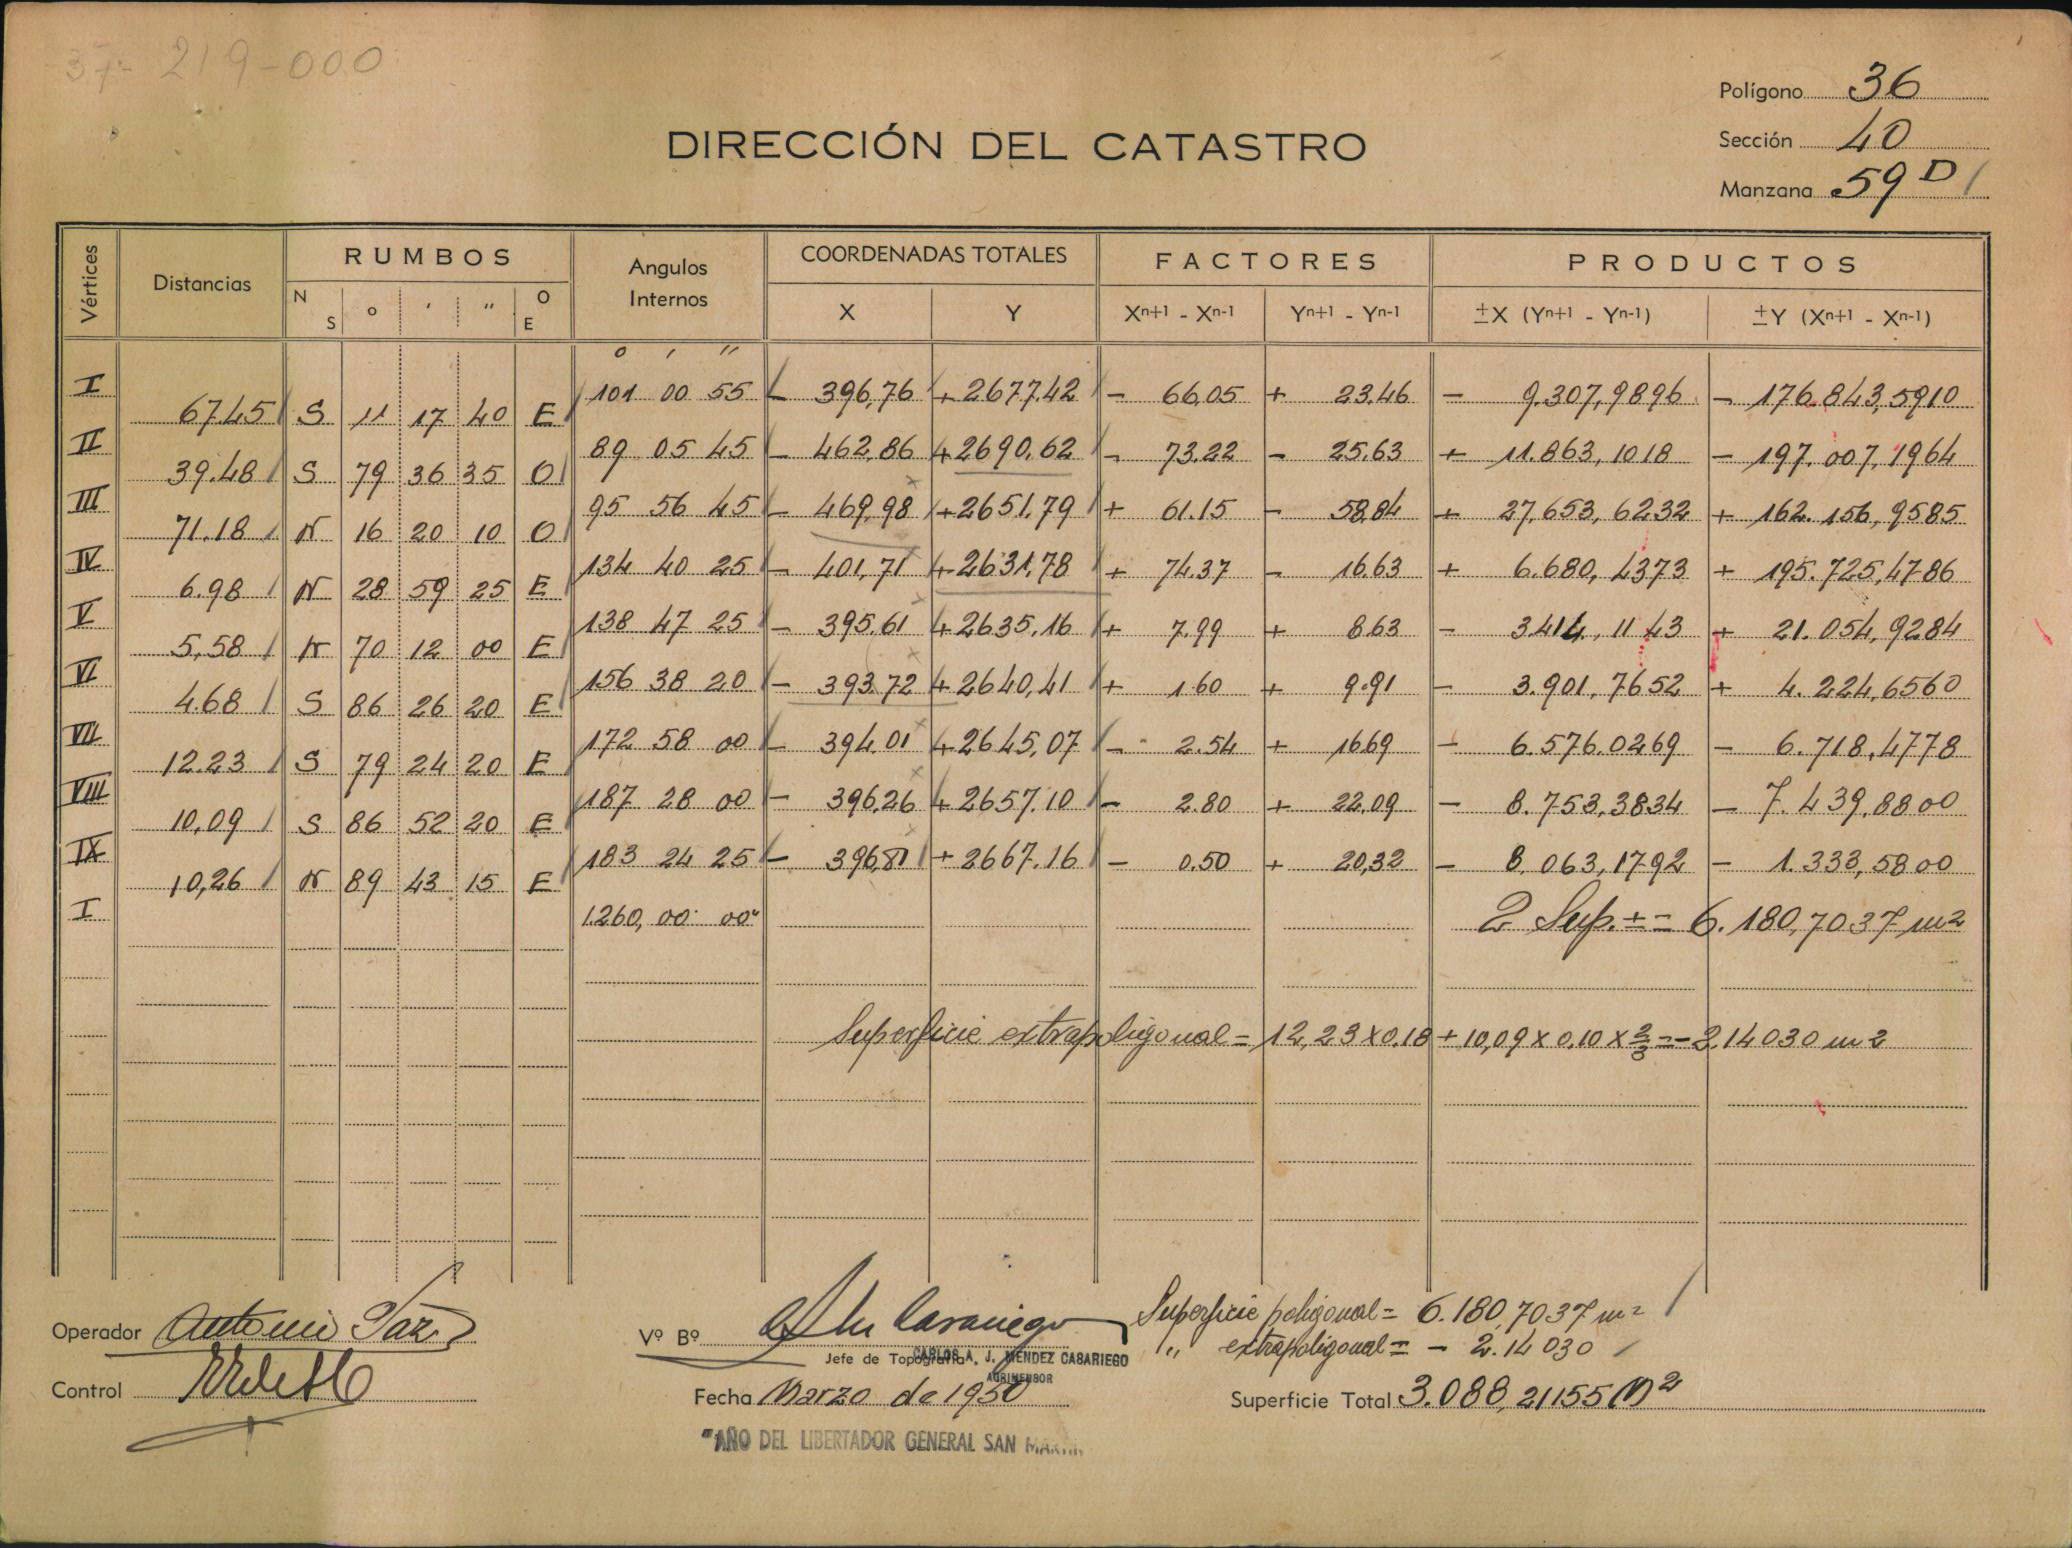 37- 219-000
Polígono 36
Sección 40
Manzana 59 D
DIRECCIÓN DEL CATASTRO
Vértices Distancias RUMBOS Angulos Internos COORDENADAS TOTALES FACTORES PRODUCTOS
N S ° ' " O E X Y Xn+1 - Xn-1 Yn+1 - Yn-1 ±X (Yn+1 - Yn-1) ±Y (Xn+1 - Xn-1)
° ' "
I 101 00 55 - 396,76 + 2677.42 - 66,05 + 23,46 - 9.307,9896 - 176.843,5910
67.45 S 11 17 40 E
II 89 05 45 - 462,86 + 2690,62 - 73.22 - 25.63 + 11.863,1018 - 197.007,1964
39.48 S 79 36 35 O
III 95 56 45 - 469,98 + 2651,79 + 61.15 - 58.84 + 27,653,6232 + 162.156,9585
71.18 N 16 20 10 O
IV 134 40 25 - 401,71 + 2631,78 + 74.37 - 16.63 + 6.680,4373 + 195.725,4786
6.98 N 28 59 25 E
V 138 47 25 - 395.61 + 2635,16 + 7.99 + 8.63 - 3.414,1143 + 21.054,9284
5,58 N 70 12 00 E
VI 156 38 20 - 393.72 + 2640,41 + 1.60 + 9.91 - 3.901,7652 + 4.224,6560
4.68 S 86 26 20 E
VII 172 58 00 - 394.01 + 2645,07 - 2.54 + 16.69 - 6.576.0269 - 6.718,4778
12.23 S 79 24 20 E
VIII 187 28 00 - 396,26 + 2657.10 - 2.80 + 22,09 - 8.753.3834 - 7.439.8800
10,09 S 86 52 20 E
IX 183 24 25 - 396,81 + 2667.16 - 0.50 + 20,32 - 8.063,1792 - 1.333,5800
10,26 N 89 43 15 E
I 1.260,00 00" 2 Sup. ± = 6.180,7037 m2
Superficie extrapoligonal = 12,23 x 0.18 + 10,09 x 0.10 x 2/3 = - 2,14030 m2
Operador Antonio Paz
Vº Bº
Superficie poligonal = 6.180,7037 m2
Jefe de Topografía CARLOS A. J. MÉNDEZ CASARIEGO
AGRIMENSOR
" extrapoligonal = - 2.14030
Control
Fecha Marzo de 1950
Superficie Total 3.088,21155 m2
"AÑO DEL LIBERTADOR GENERAL SAN MARTIN